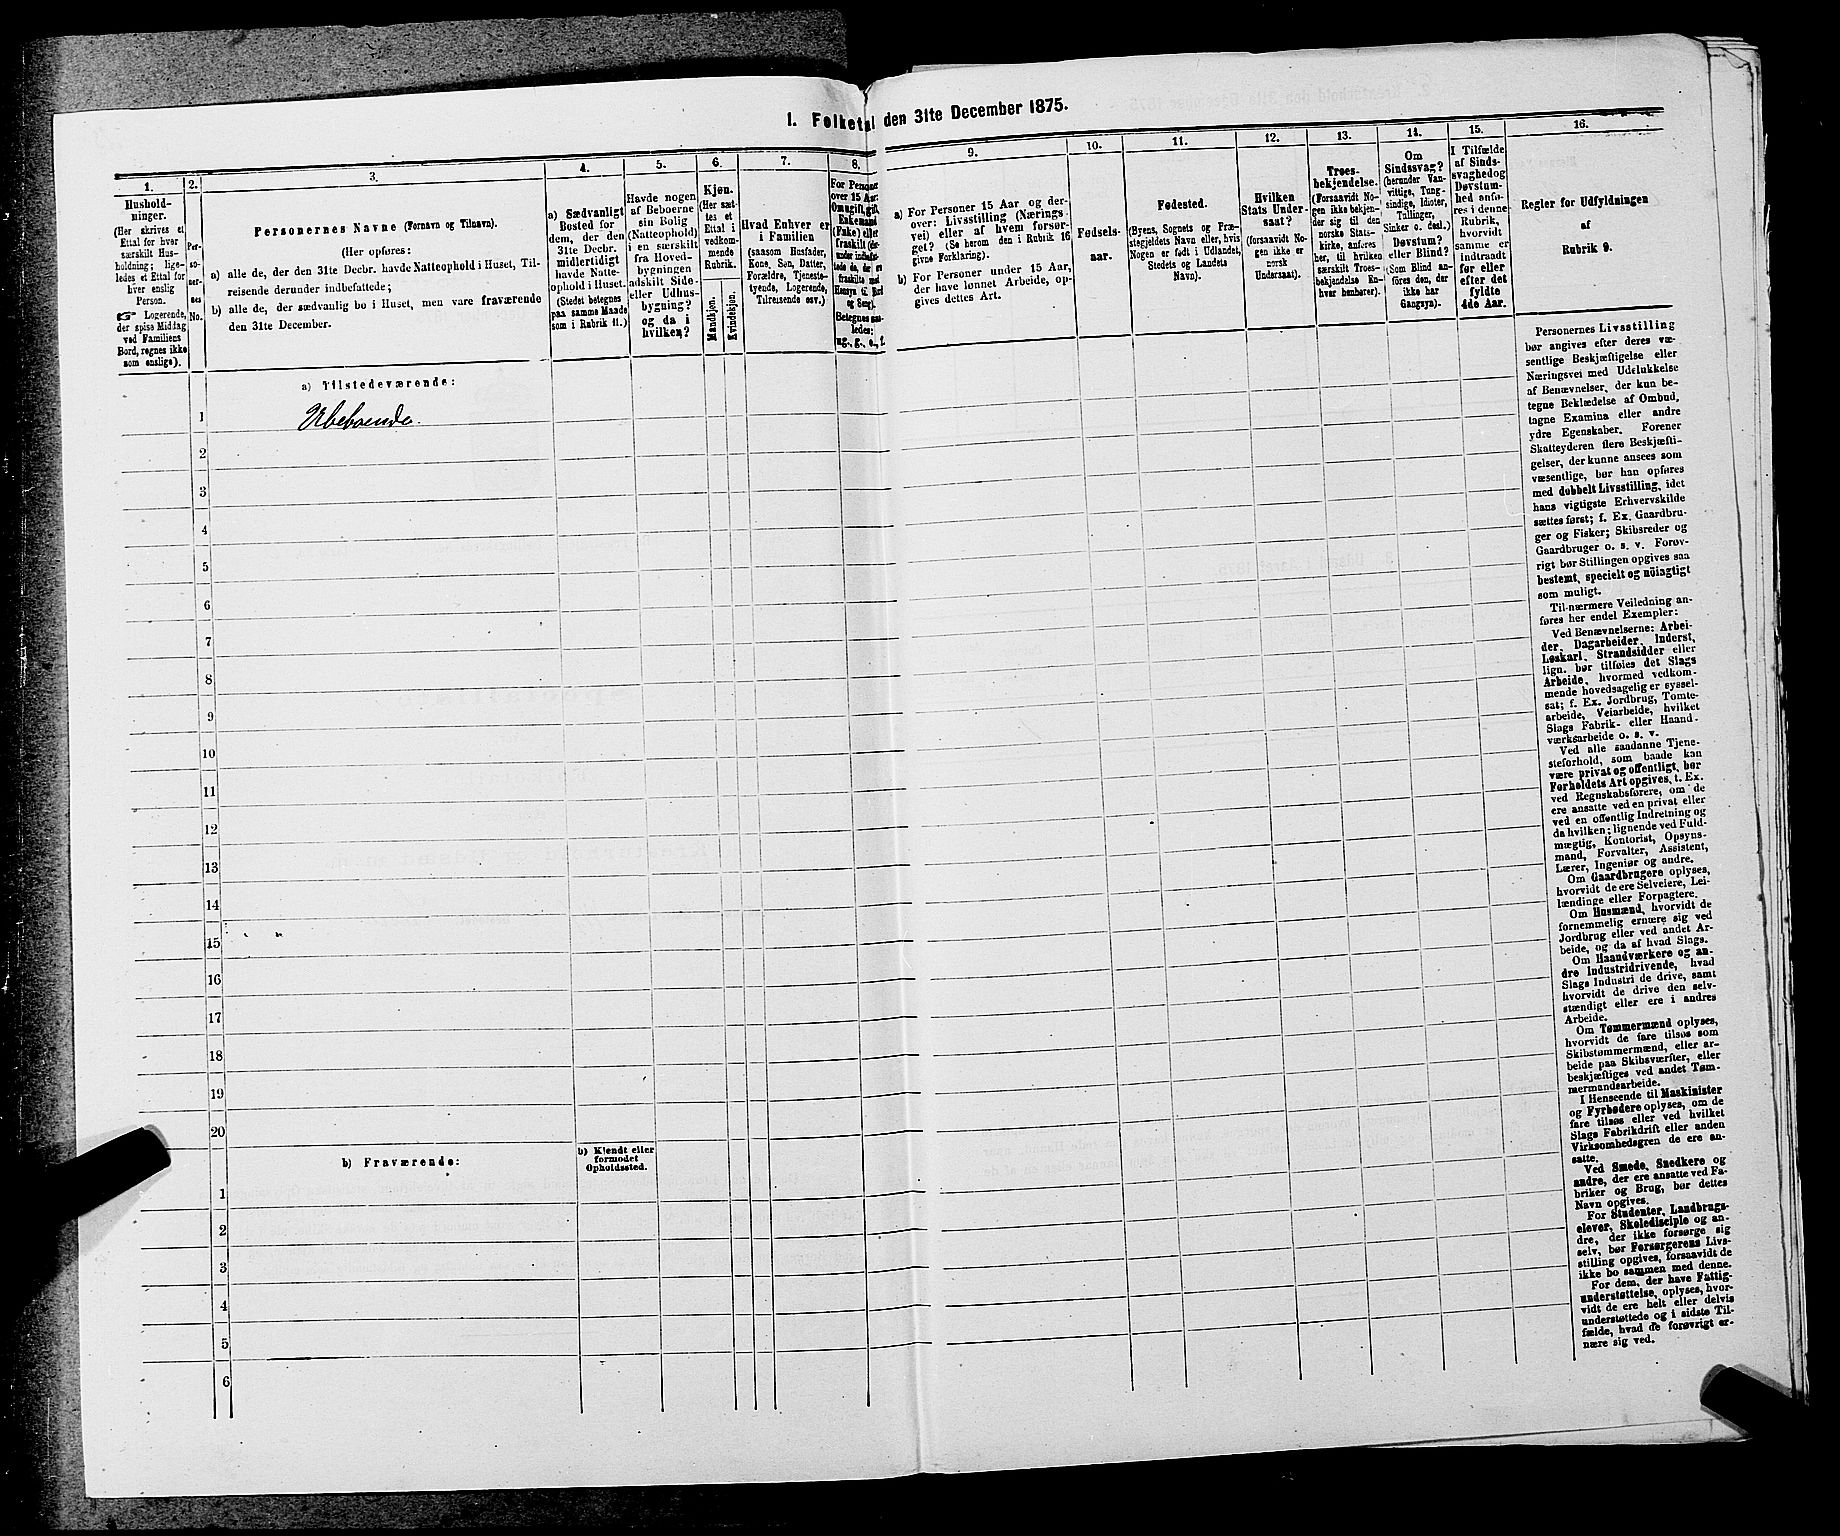 1. Folketal den 31te December 1875.
1.
Hushold-
ninger.
(Her skrives et
Ettal for hver
særskilt Hus-
holdning; lige-
ledes et Ettal for
hver enslig
Person.
☞ Logerende,
der spise Middag
ved Familiens
Bord, regnes ikke
som enslige).
2.
Per-
so-
ner-
nes
No.
3.
Personernes Navne (Fornavn og Tilnavn).
(Her opføres:
a) alle de, der den 31te Decbr. havde Natteophold i Huset, Til-
reisende derunder indbefattede;
b) alle de, der sædvanlig bo i Huset, men vare fraværende
den 31te December.
4.
a) Sædvanligt
Bosted for
dem, der den
31te Decbr.
midlertidigt
havde Natte-
ophold i Huset.
(Stedet betegnes
paa samme Maade
som i Rubrik 11.)
5.
Havde nogen
af Beboerne
sin Bolig
(Natteophold)
i en særskilt
fra Hoved-
bygningen
adskilt Side-
eller Udhus-
bygning?
og da i
hvilken?
6.
Kjøn.
(Her sæt-
tes et
Ettal i
vedkom-
mende
Rubrik.
Mandkjøn.
Kvindekjøn.
7.
Hvad Enhver er
i Familien
(saasom Husfader,
Kone, Søn, Datter,
Forældre, Tjeneste-
tyende, Logerende,
Tilreisende osv.)
8.
For Personer
over 15 Aar:
Om ugift, gift,
Enkemand
(Enke) eller
fraskilt (der-
under indbefat-
tede de, der er
fraskilte med
Hensyn til Bord
og Seng).
Betegnes saa-
ledes:
ug., g., e., f.
9.
a) For Personer 15 Aar og der-
over: Livsstilling (Nærings-
vei) eller af hvem forsør-
get? (Se herom den i Rubrik 16
givne Forklaring).
b) For Personer under 15 Aar,
der have lønnet Arbeide, op-
gives dettes Art.
10.
Fødsels-
aar.
11.
Fødested.
(Byens, Sognets og Præ-
stegjeldets Navn eller, hvis
Nogen er født i Udlandet,
Stedets og Landets
Navn).
12.
Hvilken
Stats Under-
saat?
(forsaavidt No-
gen ikke er
norsk
Undersaat).
13.
Troes-
bekjendelse.
(Forsaavidt No-
gen ikke bekjen-
der sig til den
norske Stats-
kirke, anføres
her, til hvilken
særskilt Troes-
bekjendelse En-
hver henhører).
14.
Om
Sindssvag?
(herunder Van-
vittige, Tung-
sindige, Idioter,
Tullinger,
Sinker o. desl.)
Døvstum?
eller Blind?
(Som Blind an-
føres den, der
ikke har
Gangsyn).
15.
I Tilfælde
af Sinds-
svaghed og
Døvstum-
hed anfø-
res i denne
Rubrik,
hvorvidt
samme er
indtraadt
før eller
efter det
fyldte
4de Aar.
16.
Regler for Udfyldningen
af
Rubrik 9.
a) Tilstedeværende:
1 Ubeboende.
2
3
4
5
6
7
8
9
10
11
12
13
14
15
16
17
18
19
20
b) Fraværende:
b) Kjendt eller
formodet
Opholdssted.
1
2
3
4
5
6
Personernes Livsstilling
bør angives efter deres væ-
sentlige Beskjæftigelse eller
Næringsvei med Udelukkelse
af Benævnelser, der kun be-
tegne Beklædelse af Ombud,
tagne Examina eller andre
ydre Egenskaber. Forener
Skatteyderen flere Beskjæfti-
gelser, der kunne ansees som
væsentlige, bør han opføres
med dobbelt Livsstilling, idet
hans vigtigste Erhvervskilde
sættes først; f. Ex. Gaardbru-
ger og Fisker; Skibsreder og
Gaardbruger o. s. v. Forøv-
rigt bør Stillingen opgives saa
bestemt, specielt og nøiagtigt
som muligt.
Til nærmere Veiledning an-
føres her endel Exempler:
Ved Benævnelserne: Arbei-
der, Dagarbeider, Inderst,
Løskarl, Strandsidder eller
lign. bør tilføies det Slags
Arbeide, hvormed vedkom-
mende hovedsagelig er syssel-
sat; f. Ex. Jordbrug, Tomte-
arbeide, Veiarbeide, hvilket
Slags Fabrik- eller Haand-
værksarbeide o. s. v.
Ved alle saadanne Tjene-
steforhold, som baade kan
være privat og offentligt, bør
Forholdets Art opgives, t. Ex.
ved Regnskabsførere, om de
ere ansatte ved en privat eller
ved en offentlig Indretning og
da hvilken; lignende ved Fuld-
mægtig, Kontorist, Opsyns-
mand, Forvalter, Assistent,
Lærer, Ingeniør og andre.
Om Gaardbrugere oplyses,
hvorvidt de ere Selveiere, Lei-
lændinge eller Forpagtere.
Om Husmænd, hvorvidt de
fornemmelig ernære sig ved
Jordbrug eller ved andet Ar-
beide, og da af hvad Slags.
Om Haandværkere og an-
dre Industridrivende, hvad
Slags Industri de drive, samt
hvorvidt de drive den selv-
stændigt eller ere i andres
Arbeide.
Om Tømmermænd oplyses,
hvorvidt de fare tilsøs som
Skibstømmermænd, eller ar-
beide paa Skibsværfter, eller
beskjæftiges ved andet Tøm-
mermandsarbeide.
I Henseende til Maskinister
og Fyrbødere oplyses, om de
fare tilsøs eller ved hvilket
Slags Fabrikdrift eller anden
Virksomhedsgren de ere an-
satte.
Ved Smede, Snedkere og
andre, der ere ansatte ved Fa-
briker og Brug, bør dettes
Navn opgives.
For Studenter, Landbrugs-
elever, Skoledisciple og an-
dre, der ikke forsørge sig
selv, bør Forsørgerens Livs-
stilling opgives, forsaavidt de
ikke bo sammen med denne.
For dem, der have Fattig-
understøttelse, oplyses, hvor-
vidt de ere helt eller delvis
understøttede og i sidste Til-
fælde, hvad de forøvrigt er-
nære sig ved.